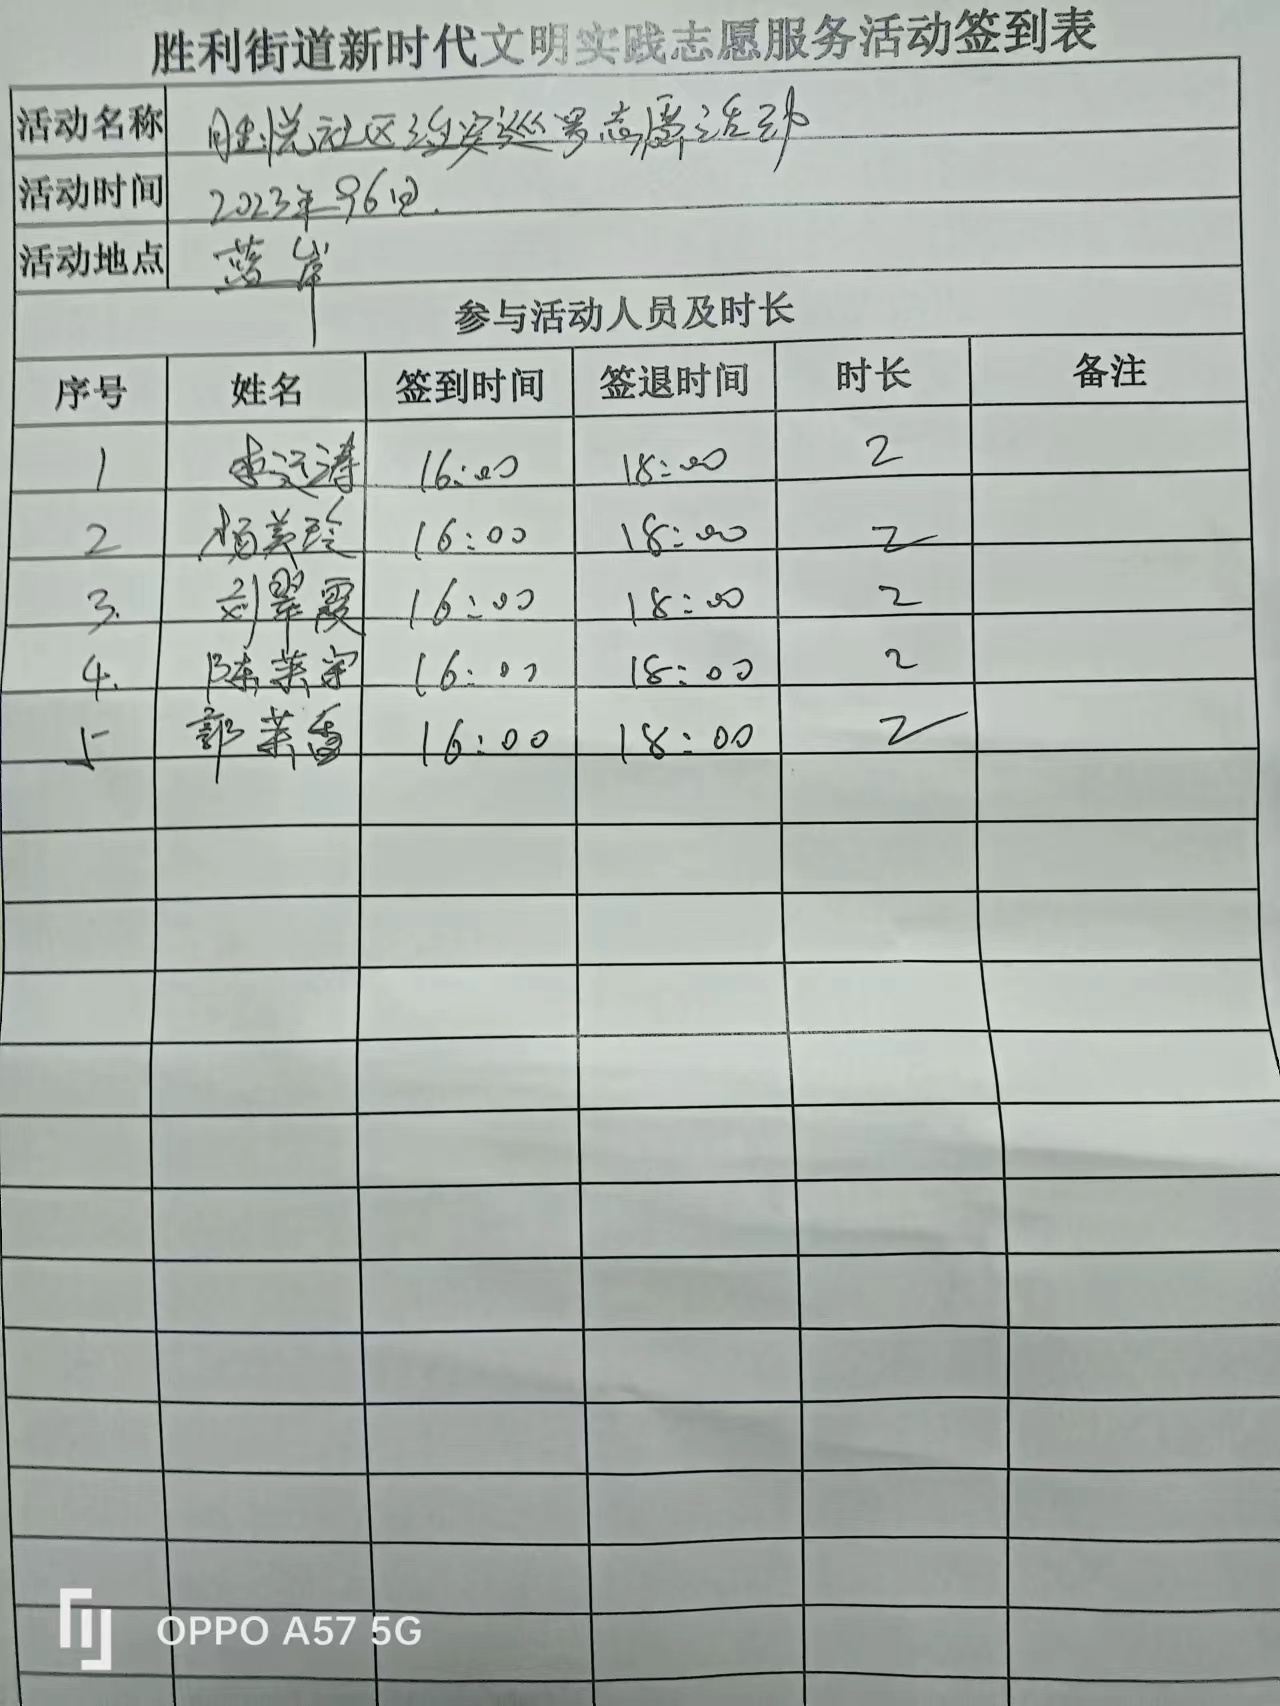 胜利街道新时代文明实践志愿服务活动签到表
活动名称 胜悦社区治安巡逻志愿活动
活动时间 2023年96日.
活动地点 蓝岸
参与活动人员及时长
序号 姓名 签到时间 签退时间 时长 备注
1 远涛 16:00 18:00 2
2 杨美玲 16:00 18:00 2
3. 刘翠霞 16:00 18:00 2
4. 陈英 16:00 18:00 2
5 郭英香 16:00 18:00 2
OPPO A57 5G